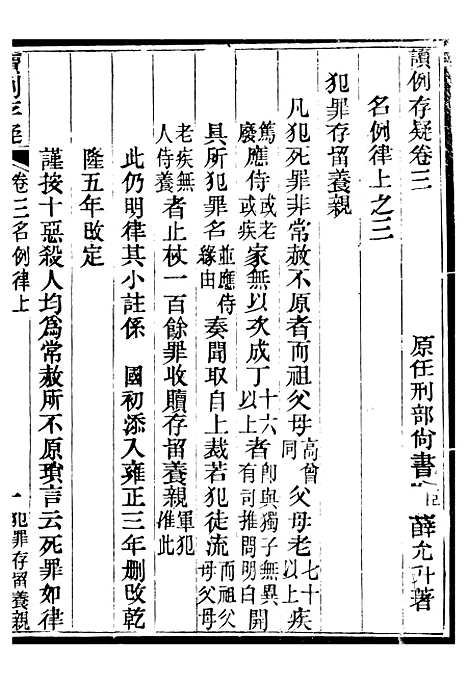 讀例存疑卷三
名例律上之三　原任刑部尙書臣薛允升著
犯罪存留養親
凡犯死罪非常赦不原者而祖父母高曾同父母老七十以上疾
篤廢應侍或老或疾家無以次成丁十六以上者即與獨子無異有司推問明白開
具所犯罪名並應侍緣由奏聞取自上裁若犯徒流而祖父母父母
老疾無人侍養者止杖一百餘罪收贖存留養親軍犯准此
此仍明律其小註係　國初添入雍正三年刪改乾
隆五年改定
謹按十惡殺人均爲常赦所不原瑣言云死罪如律
讀例存疑
卷三名例律上
一
犯罪存留養親